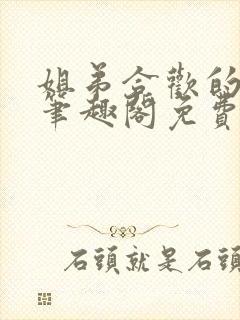 姐弟合歡的
筆趣閣免費
石頭就是石頭